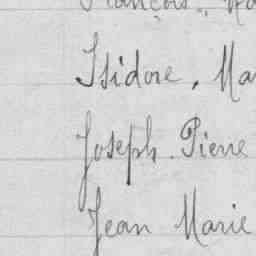 François,
Isidore, Ma
Joseph. Pierre
Jean Marie